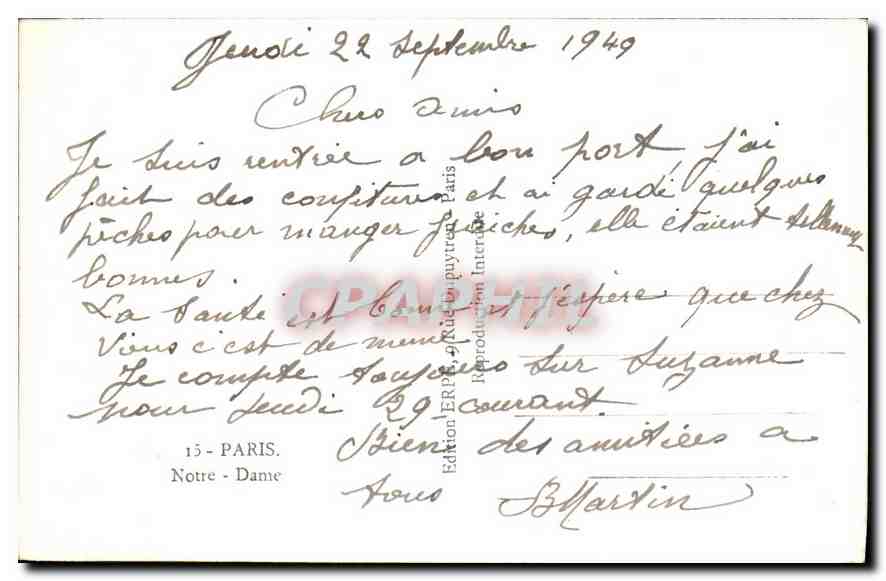 Jeudi 22 Septembre 1949
Chers amis
Je suis rentrée a bon port, j'ai
fait des confitures et ai gardé quelques
pêches pour manger fraiches, elle étaient tellement
bonnes.
La santé est bonne et j'espère que chez
vous c'est de meme
Je compte toujours sur Suzanne
pour jeudi 29 courant.
Bien des amitiées a
tous BMartin
15 - PARIS.
Notre - Dame
Edition ERPE, 9 Rue Dupuytren - Paris
Reproduction Interdite
CPAPHIL